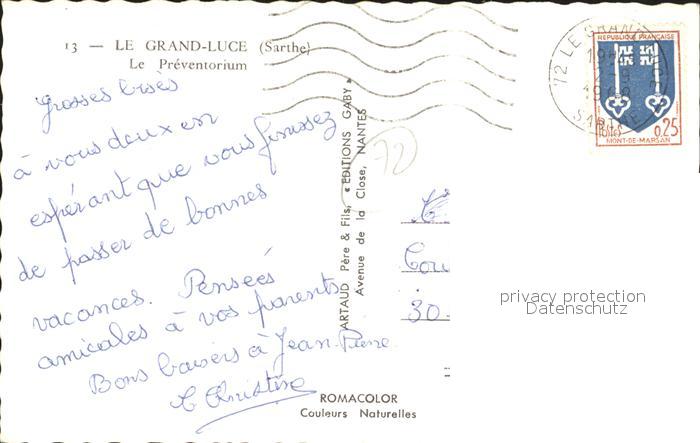 13 — LE GRAND-LUCE (Sarthe)
Le Préventorium
Grosses bises
à vous deux en
espérant que vous finissez
de passer de bonnes
vacances. Pensées
amicales à vos parents
Bons baisers à Jean-Pierre
Christine
ARTAUD Père & Fils, « EDITIONS GABY »
Avenue de la Close, NANTES
72
72 LE GRAND
SARTHE
REPUBLIQUE FRANÇAISE
0,25
MONT-DE-MARSAN
30.
privacy protection
Datenschutz
ROMACOLOR
Couleurs Naturelles